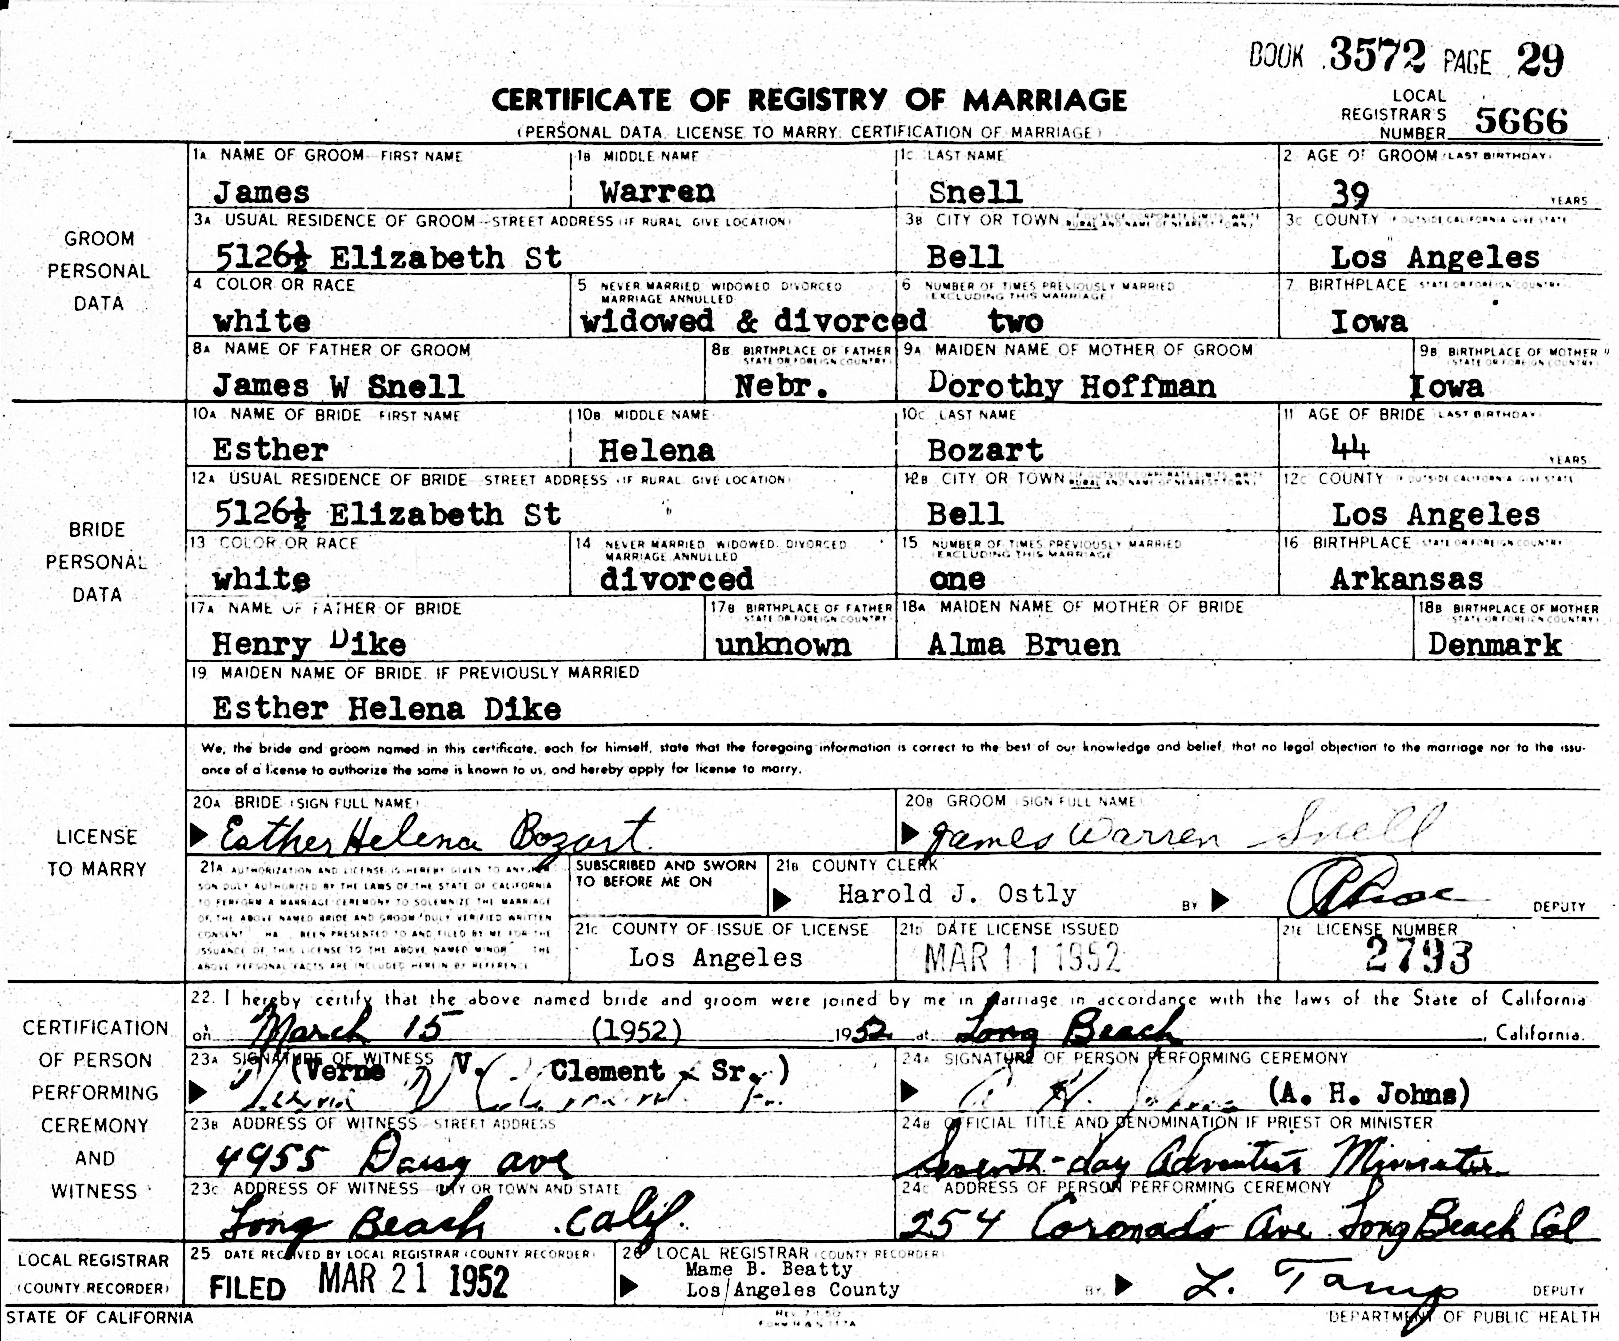 BOOK 3572 PAGE 29
CERTIFICATE OF REGISTRY OF MARRIAGE
(PERSONAL DATA, LICENSE TO MARRY, CERTIFICATION OF MARRIAGE)
LOCAL REGISTRAR'S NUMBER 5666
GROOM PERSONAL DATA
1A NAME OF GROOM—FIRST NAME 1B MIDDLE NAME 1C LAST NAME 2 AGE OF GROOM (LAST BIRTHDAY)
James Warren Snell 39 YEARS
3A USUAL RESIDENCE OF GROOM—STREET ADDRESS (IF RURAL GIVE LOCATION) 3B CITY OR TOWN 3C COUNTY (IF OUTSIDE CALIFORNIA GIVE STATE)
5126½ Elizabeth St Bell Los Angeles
4 COLOR OR RACE 5 NEVER MARRIED, WIDOWED, DIVORCED, MARRIAGE ANNULLED 6 NUMBER OF TIMES PREVIOUSLY MARRIED (EXCLUDING THIS MARRIAGE) 7 BIRTHPLACE (STATE OR FOREIGN COUNTRY)
white widowed & divorced two Iowa
8A NAME OF FATHER OF GROOM 8B BIRTHPLACE OF FATHER (STATE OR FOREIGN COUNTRY) 9A MAIDEN NAME OF MOTHER OF GROOM 9B BIRTHPLACE OF MOTHER (STATE OR FOREIGN COUNTRY)
James W Snell Nebr. Dorothy Hoffman Iowa
BRIDE PERSONAL DATA
10A NAME OF BRIDE FIRST NAME 10B MIDDLE NAME 10C LAST NAME 11 AGE OF BRIDE (LAST BIRTHDAY)
Esther Helena Bozart 44 YEARS
12A USUAL RESIDENCE OF BRIDE STREET ADDRESS (IF RURAL GIVE LOCATION) 12B CITY OR TOWN 12C COUNTY (IF OUTSIDE CALIFORNIA GIVE STATE)
5126½ Elizabeth St Bell Los Angeles
13 COLOR OR RACE 14 NEVER MARRIED, WIDOWED, DIVORCED, MARRIAGE ANNULLED 15 NUMBER OF TIMES PREVIOUSLY MARRIED (EXCLUDING THIS MARRIAGE) 16 BIRTHPLACE (STATE OR FOREIGN COUNTRY)
white divorced one Arkansas
17A NAME OF FATHER OF BRIDE 17B BIRTHPLACE OF FATHER (STATE OR FOREIGN COUNTRY) 18A MAIDEN NAME OF MOTHER OF BRIDE 18B BIRTHPLACE OF MOTHER (STATE OR FOREIGN COUNTRY)
Henry Dike unknown Alma Bruen Denmark
19 MAIDEN NAME OF BRIDE IF PREVIOUSLY MARRIED
Esther Helena Dike
LICENSE TO MARRY
We, the bride and groom named in this certificate, each for himself, state that the foregoing information is correct to the best of our knowledge and belief, that no legal objection to the marriage nor to the issu-
ance of a license to authorize the same is known to us, and hereby apply for license to marry.
20A BRIDE (SIGN FULL NAME) 20B GROOM (SIGN FULL NAME)
Esther Helena Bozart James Warren Snell
21A AUTHORIZATION AND LICENSE IS HEREBY GIVEN TO ANY PER-
SON DULY AUTHORIZED BY THE LAWS OF THE STATE OF CALIFORNIA
TO PERFORM A MARRIAGE CEREMONY TO SOLEMNIZE THE MARRIAGE
OF THE ABOVE NAMED BRIDE AND GROOM DULY VERIFIED WRITTEN
CONSENT HA BEEN PRESENTED TO AND FILED BY ME FOR THE
ISSUANCE OF THIS LICENSE TO THE ABOVE NAMED MINOR THE
ABOVE PERSONAL FACTS ARE INCLUDED HEREIN BY REFERENCE
SUBSCRIBED AND SWORN TO BEFORE ME ON
21B COUNTY CLERK
Harold J. Ostly BY DEPUTY
21C COUNTY OF ISSUE OF LICENSE 21D DATE LICENSE ISSUED 21E LICENSE NUMBER
Los Angeles MAR 11 1952 2793
CERTIFICATION OF PERSON PERFORMING CEREMONY AND WITNESS
22. I hereby certify that the above named bride and groom were joined by me in marriage in accordance with the laws of the State of California
on March 15 (1952) 1952 at Long Beach, California.
23A SIGNATURE OF WITNESS 24A SIGNATURE OF PERSON PERFORMING CEREMONY
(Verne V. Clement Sr.) (A. H. Johns)
Verne V Clement Sr. A H Johns
23B ADDRESS OF WITNESS STREET ADDRESS 24B OFFICIAL TITLE AND DENOMINATION IF PRIEST OR MINISTER
4955 Daisy ave Seventh-day Adventist Minister
23C ADDRESS OF WITNESS CITY OR TOWN AND STATE 24C ADDRESS OF PERSON PERFORMING CEREMONY
Long Beach Calif. 254 Coronado Ave Long Beach Cal
LOCAL REGISTRAR (COUNTY RECORDER)
25 DATE RECEIVED BY LOCAL REGISTRAR (COUNTY RECORDER) 26 LOCAL REGISTRAR (COUNTY RECORDER)
FILED MAR 21 1952 Mame B. Beatty
Los Angeles County BY L. Tamp DEPUTY
STATE OF CALIFORNIA DEPARTMENT OF PUBLIC HEALTH